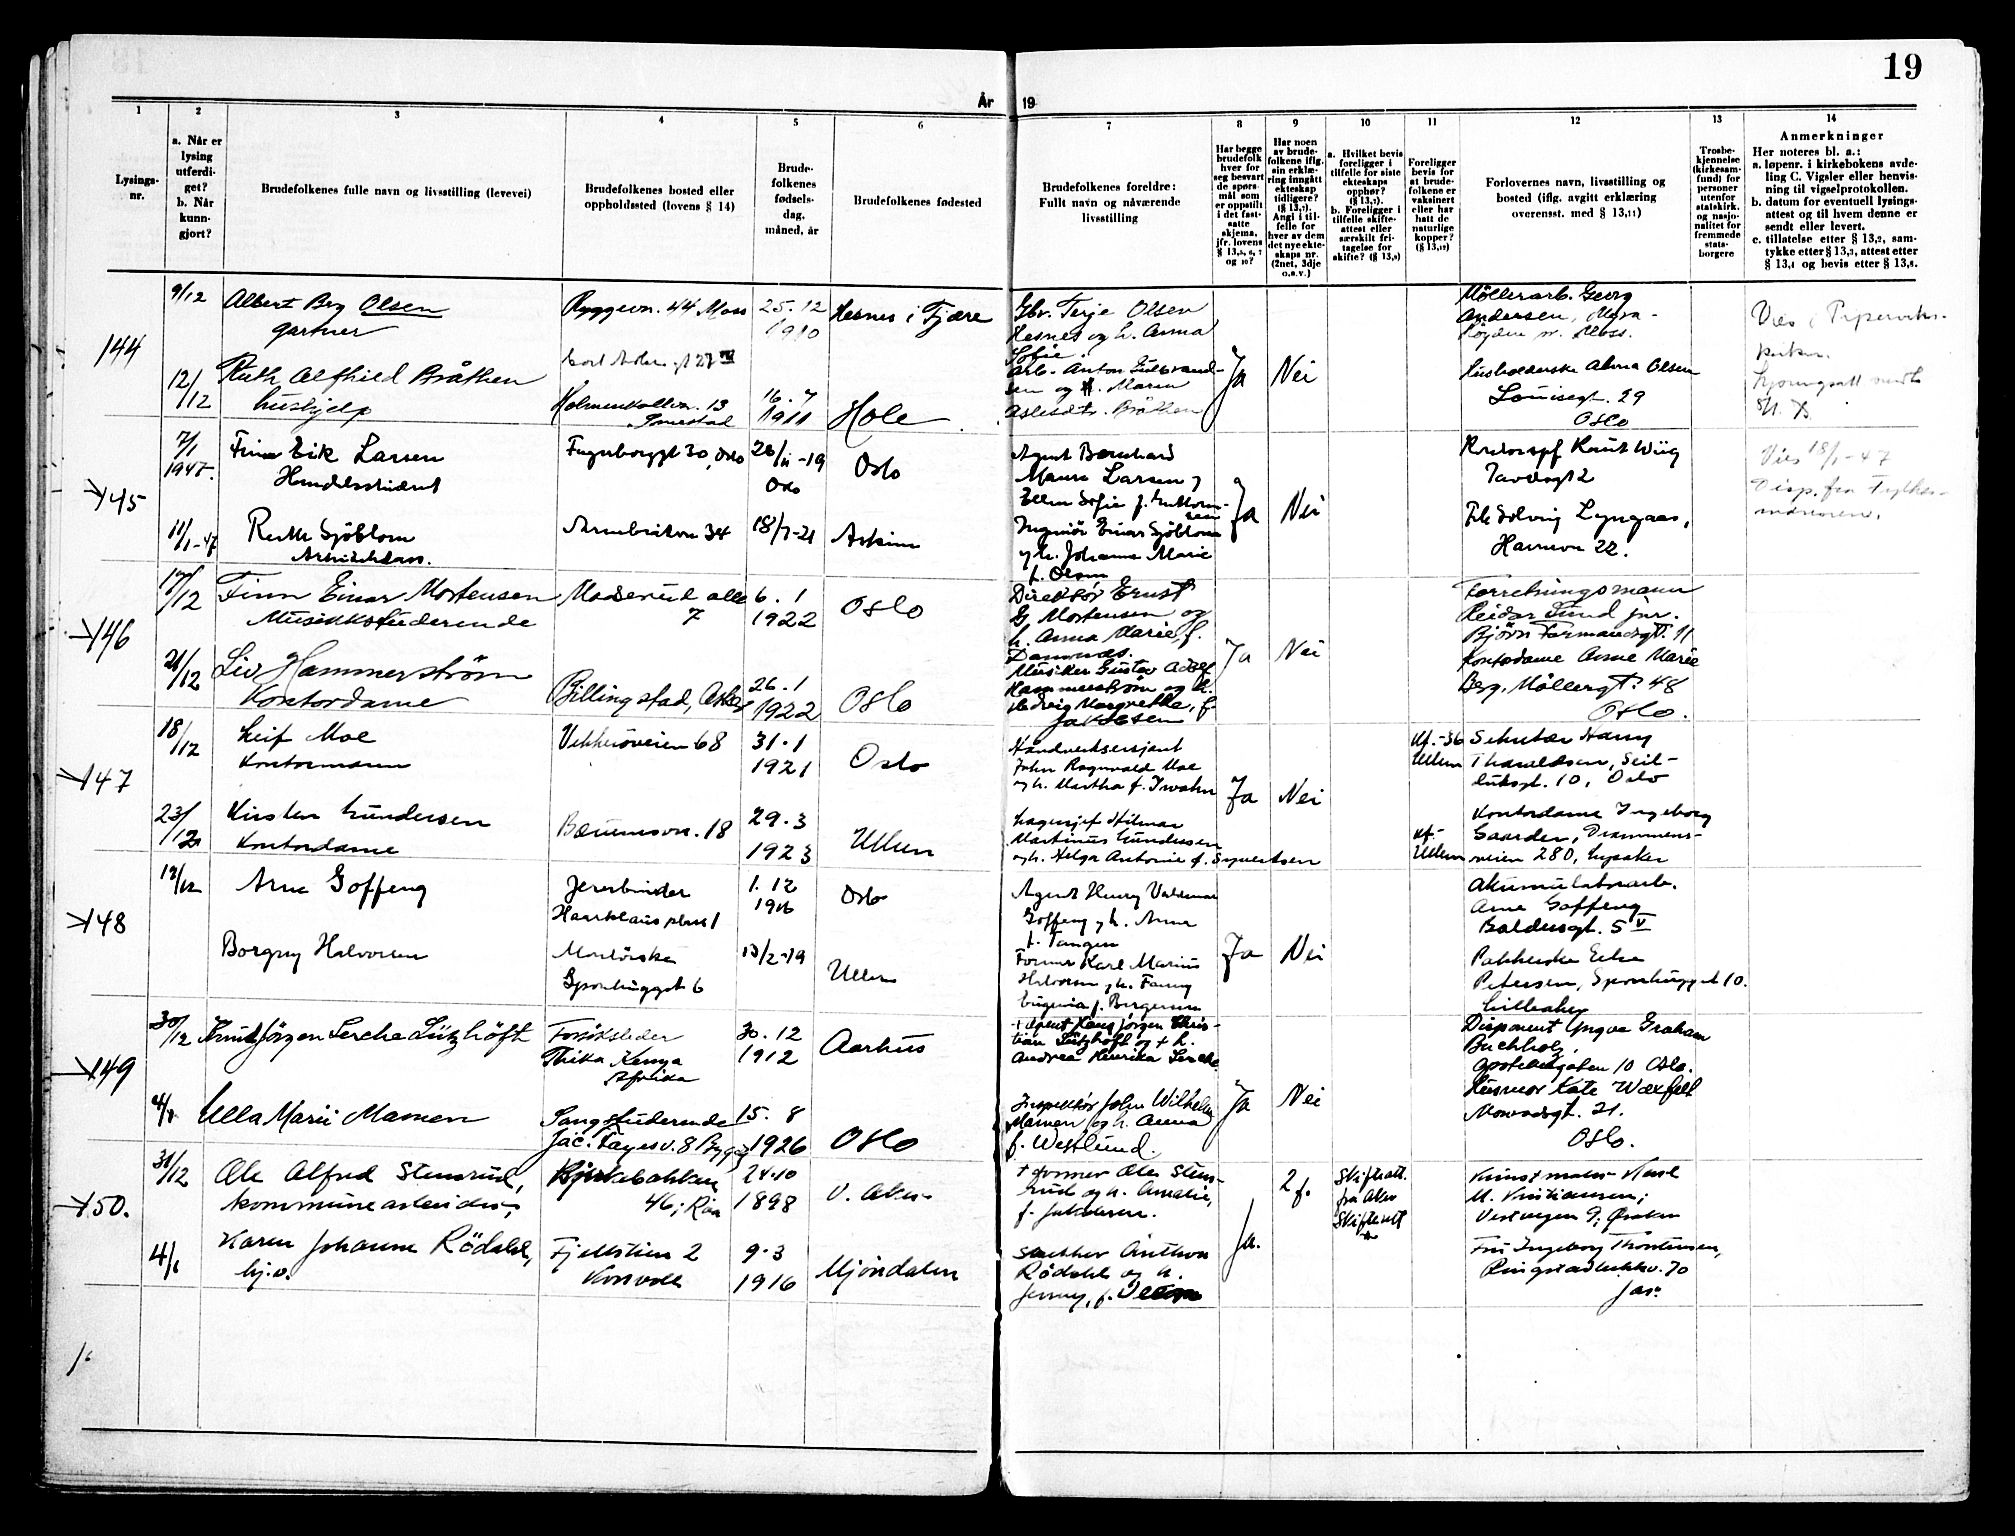 19
År 19
1
2
3
4
5
6
7
8
9
10
11
12
13
14
Lysings-
nr.
a. Når er
lysing
utferdi-
get?
b. Når
kunn-
gjort?
Brudefolkenes fulle navn og livsstilling (levevei)
Brudefolkenes bosted eller
oppholdssted (lovens § 14)
Brude-
folkenes
fødsels-
dag,
måned, år
Brudefolkenes fødested
Brudefolkenes foreldre:
Fullt navn og nåværende
livsstilling
Har begge
brudefolk
hver for
seg besvart
de spørs-
mål som
er oppstilt
i det fast-
satte
skjema,
jfr. lovens
og 10?
Har noen
av brude-
folkene iflg.
sin erklæ-
ring inngått
ekteskap
tidligere?
(§ 13,7).
Angi i til-
felle for
hver av dem
det nye ekte-
skaps nr.
(2net, 3dje
o.s.v.)
a. Hvilket bevis
foreligger i
tilfelle for siste
ekteskaps
opphør?
(§ 13,7).
b. Foreligger i
tilfelle skifte-
attest eller
særskilt fri-
tagelse for
skifte? (§ 13,8)
Foreligger
bevis for
at brude-
folkene er
vaksinert
eller har
hatt de
naturlige
kopper?
Forlovernes navn, livsstilling og
bosted (iflg. avgitt erklæring
overensst. med § 13,11)
Trosbe-
kjennelse
(kirkesam-
fund) for
personer
utenfor
statskirk.
og nasjo-
nalitet for
fremmede
stats-
borgere
Anmerkninger
Her noteres bl. a.:
a. løpenr. i kirkebokens avde-
ling C. Vigsler eller henvis-
ning til vigselprotokollen.
b. datum for eventuell lysings-
attest og til hvem denne er
sendt eller levert.
c. tillatelse etter § 13,2, sam-
tykke etter § 13,3, attest etter
§ 13,4 og bevis etter § 13,6.
144
9/12
Albert Berg Olsen
gartner
Ryggevn. 44 Moss
25.12
1910
Hesnes i Fjære
Gbr. Terje Olsen
Hesnes og h. Anna
Sofie.
Møllerarb. Georg
Andersen,
12/12
Ruth Alfhild Bråthen
hushjelp
Holmenkollvn. 13
16.7
1911
Hole
Arb. Anton Gulbrand-
sen og h. Maren
Aslesdt. Bråthen
Ja
Nei
Husholderske Alma Olsen
Louisegt. 29
Oslo
145
7/1
1947.
Finn Eik Larsen
Handelsstudent
Fagerborggt 30, Oslo
Oslo
Oslo
Agent Bernhard
Larsen
Ja
Nei
Knut Wiig
Vies 18/1-47
11/1-47
Ruth Sjöblom
34
18/7-21
Askim
Ingeniør Einar Sjöblom
og h. Johanne Marie
f. Olsen
Frk Solveig Lyngaas,
Havnevn 22.
146
17/12
Finn Einar Mortensen
Musikkstuderende
Madserud alle
7
6.1
1922
Oslo
Direktør Ernst
G. Mortensen og
h. Anna Marie f.
Forretningsmann
Reidar Lund jnr.
Bjørn Farmandsgt. 11
21/12
Liv Hammerstrøm
Kontordame
Billingstad, Asker
26.1
1922
Oslo
Musiker Gustav Adolf
Hammerstrøm og h.
Hedvig Margrethe, f.
Jakobsen
Ja
Nei
Kontordame Anne Marie
Berg, Møllergt. 48
Oslo.
147
18/12
Leif Moe
Kontormann
Vekkerøveien 68
31.1
1921
Oslo
Håndverksersjant
John Ragnvald Moe
og h. Martha f.
Kf.-36
Ullern
Sekretær Harry
Tharaldsen, Seil-
duksgt. 10, Oslo
23/12
Kirsten Gundersen
Kontordame
Bærumsvn. 18
29.3
1923
Ullern
Lagersjef Hilmar
Martinus Gundersen
og h. Helga Antonie f. Syvertsen
Ja
Nei
Kf.-
Ullern
Kontordame Ingeborg
Gaarder, Drammens-
veien 280, Lysaker
148
Arne Goffeng
Jernbinder
1.12
1916
Oslo
Agent Henry Valdemar
Goffeng og h. Anna
f. Tangen
Akumulatorarb.
Arne Goffeng
Baldersgt. 5 V
Borgny Halvorsen
Sponhugget 6
13/2-19
Ullern
Former Karl Marius
Halvorsen og h. Fanny
Eugenia f. Bergersen
Ja
Nei
Pakkerske Elsa
Petersen, Sponhugget 10.
Lilleaker
149
30/12
Knud Jörgen Lerche Lützhöft
Forsöksleder
Thika Kenya
Afrika
30.12
1912
Aarhus
Jørgen Chris-
tian Lützhöft og + h.
Andrea Henrika Lerche
Disponent Yngve Graham
Buchholz,
10 Oslo.
Ulla Marie Mamen
Sangstuderende
Jac. Fayesv. 8 Bygdø
15.8
1926
Oslo
Inspektör John Wilhelm
Mamen og h. Anna
f. Westlund.
Ja
Nei
Husmor Kate Waxfelt
21.
Oslo.
150.
31/12
Ole Alfred Stensrud,
kommunearbeider,
Bjerkebakken
46, Röa
24.10
1898
V. Aker
+ former Ole Stens-
rud og h. Amalie,
f. Jakobsen.
2 f.
Skifteatt.
fra Aker
Skifterett
Kunstmaler Karl
M. Kristiansen,
4/1
Karen Johanne Rödahl,
hj.v.
Fjellstien 2
Korsvoll
9.3
1916
Mjöndalen
Snekker Anthon
Rödahl og h.
Jenny, f.
Ja.
Fru Ingeborg Thorstensen,
70